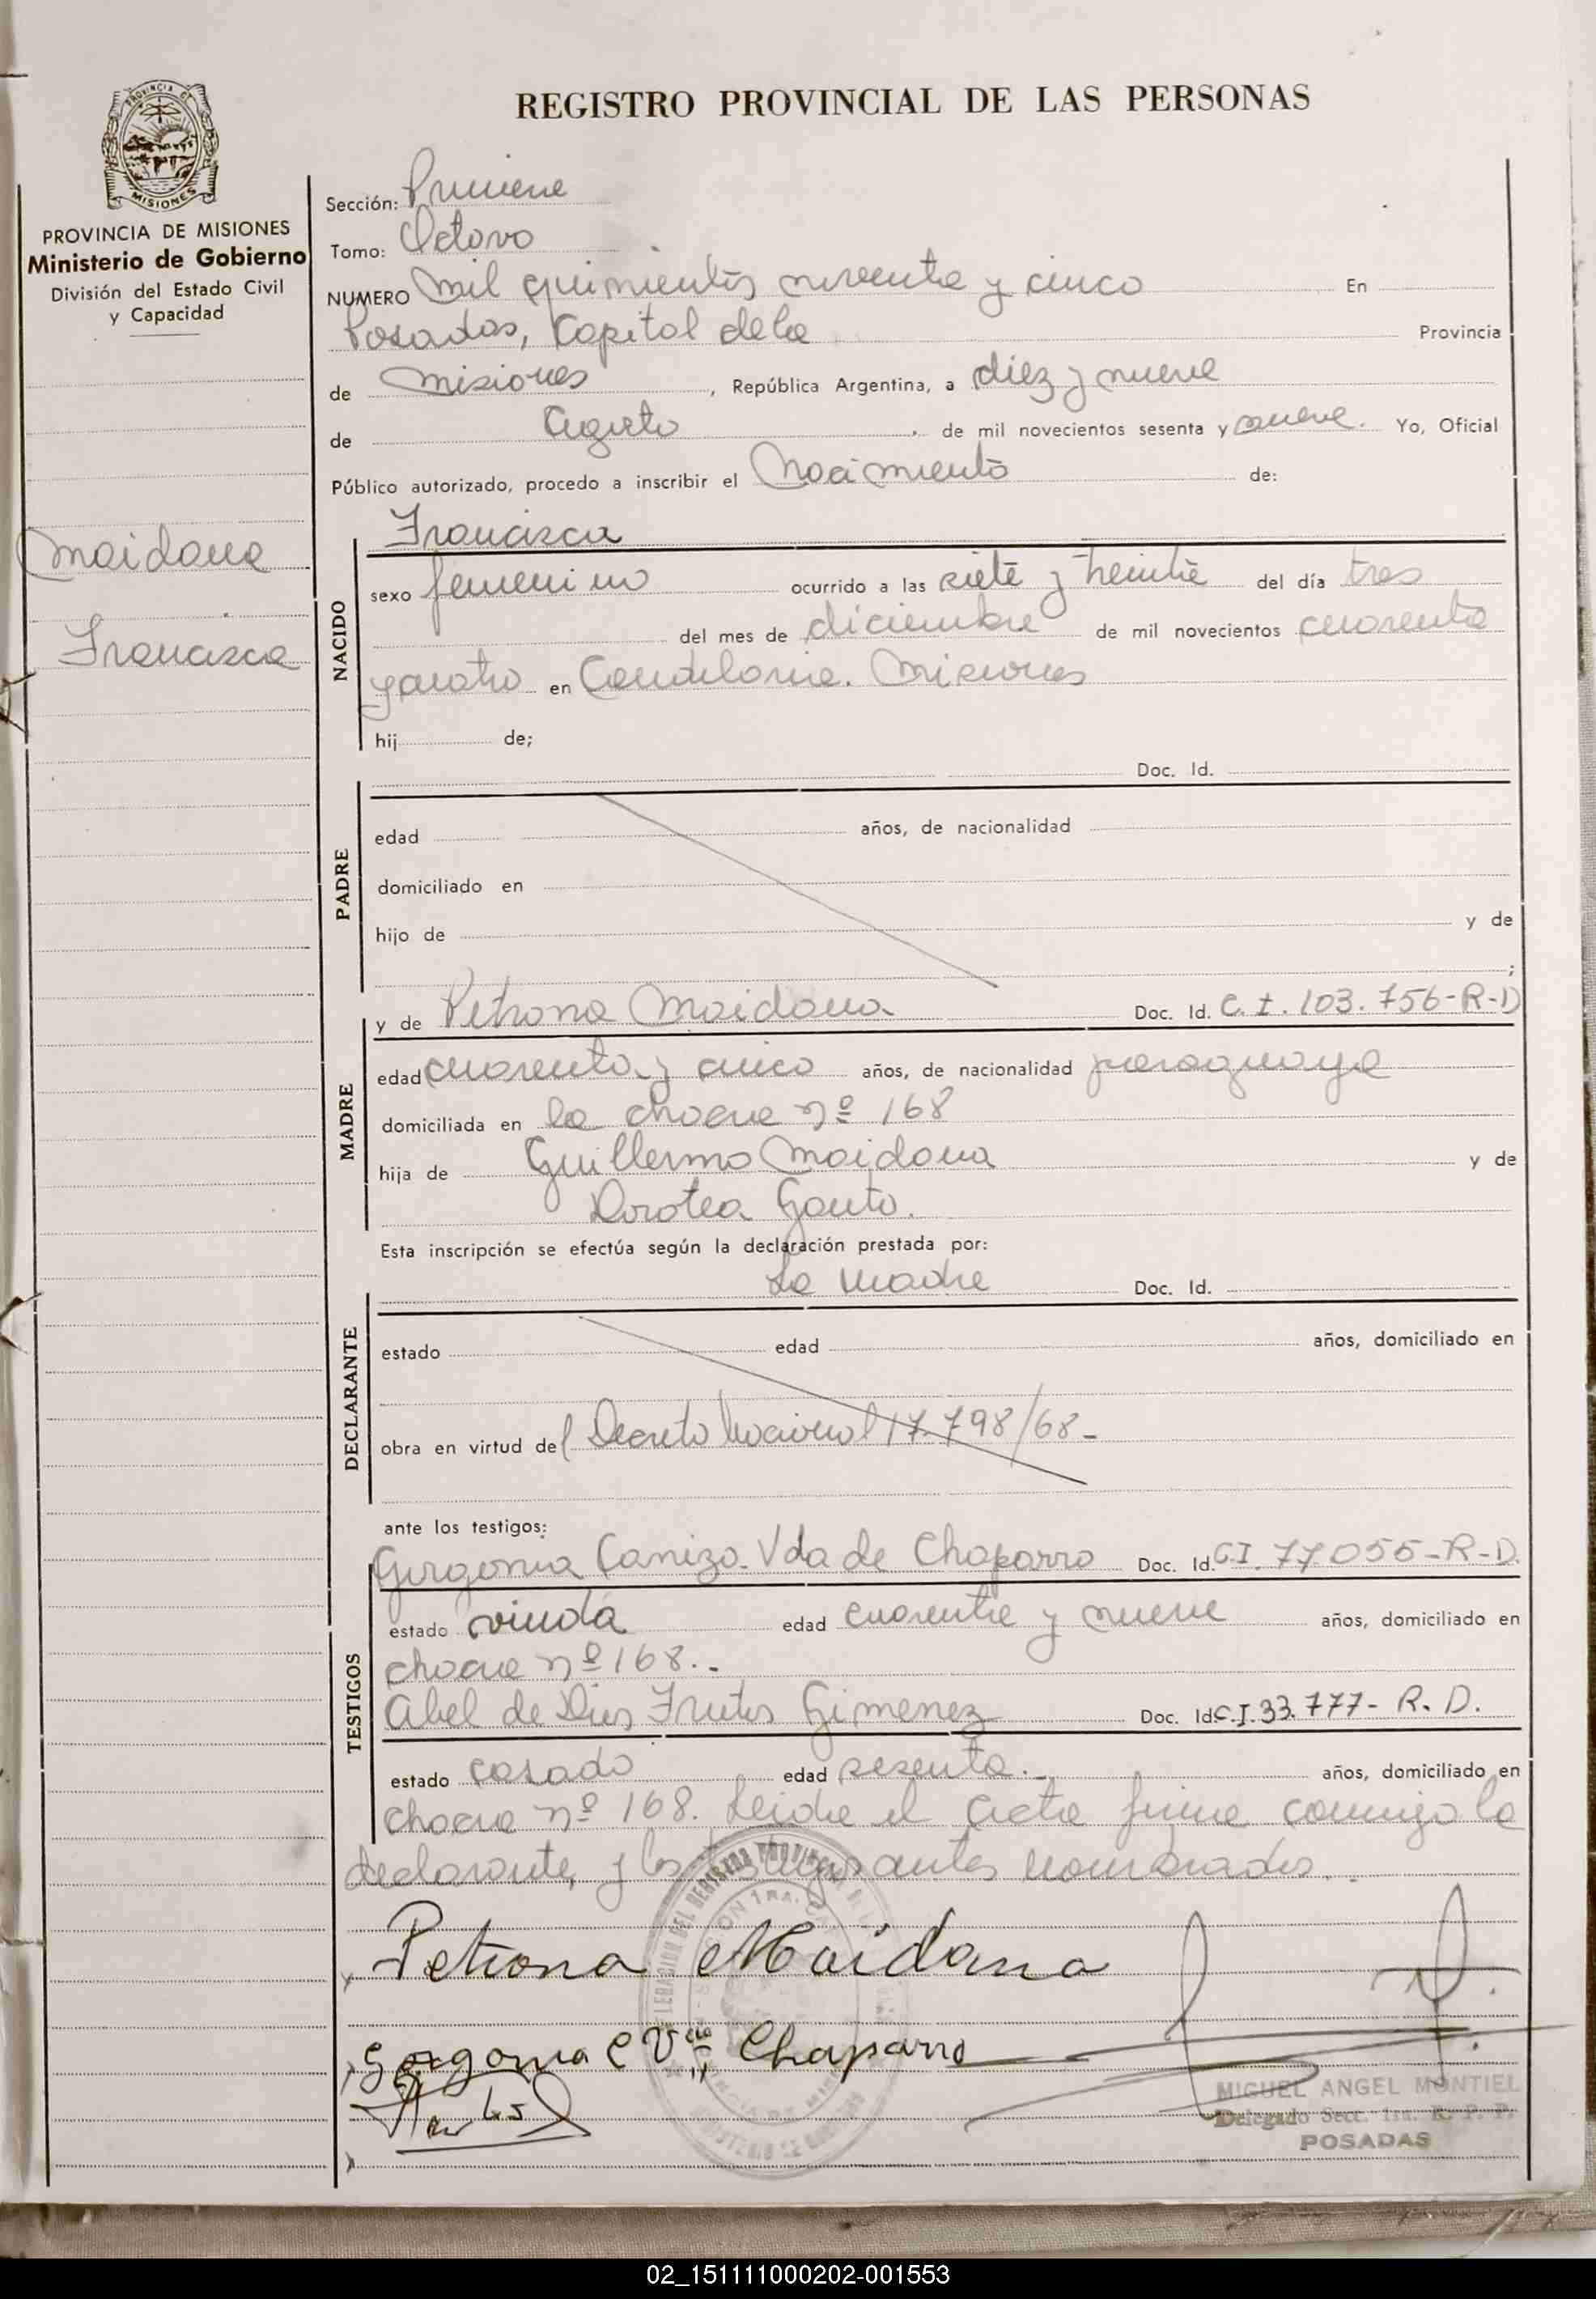 REGISTRO PROVINCIAL DE LAS PERSONAS
PROVINCIA DE
MISIONES
PROVINCIA DE MISIONES
Ministerio de Gobierno
División del Estado Civil
y Capacidad
Maidana
Francisca
Sección: Primera
Tomo: Octavo
NUMERO mil quinientos noventa y cinco En
Posadas, Capital de la Provincia
de Misiones, República Argentina, a diez y nueve
de Agosto de mil novecientos sesenta y nueve. Yo, Oficial
Público autorizado, procedo a inscribir el Nacimiento de:
Francisca
NACIDO
sexo femenino ocurrido a las siete y treinta del día tres
del mes de diciembre de mil novecientos cuarenta
y cuatro en Candelaria. Misiones
hij de;
Doc. Id.
PADRE
edad años, de nacionalidad
domiciliado en
hijo de y de
;
y de Petrona Maidana Doc. Id. C. I. 103.756-R-D
MADRE
edad cuarenta y cinco años, de nacionalidad paraguaya
domiciliada en la chacra nº 168
hija de Guillermo Maidana y de
Dorotea Gauto.
Esta inscripción se efectúa según la declaración prestada por:
La madre Doc. Id.
DECLARANTE
estado edad años, domiciliado en
obra en virtud del Decreto Nacional 17.798/68-
ante los testigos:
Gorgonia Canizo. Vda de Chaparro Doc. Id. C.I. 77055-R-D.
TESTIGOS
estado viuda edad cuarenta y nueve años, domiciliado en
chacra nº 168..
Abel de Dios Frutos Gimenez Doc. Id. C.I. 33.777- R. D.
estado casado edad sesenta.. años, domiciliado en
chacra nº 168. Leida el acta firma conmigo la
declarante, y los testigos antes nombrados..
Petrona Maidana
Gorgonia C Vda Chaparro
MIGUEL ANGEL MONTIEL
Delegado Secc. 1ra. R. P. P.
POSADAS
02_151111000202-001553